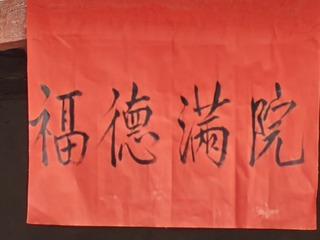 福德满院